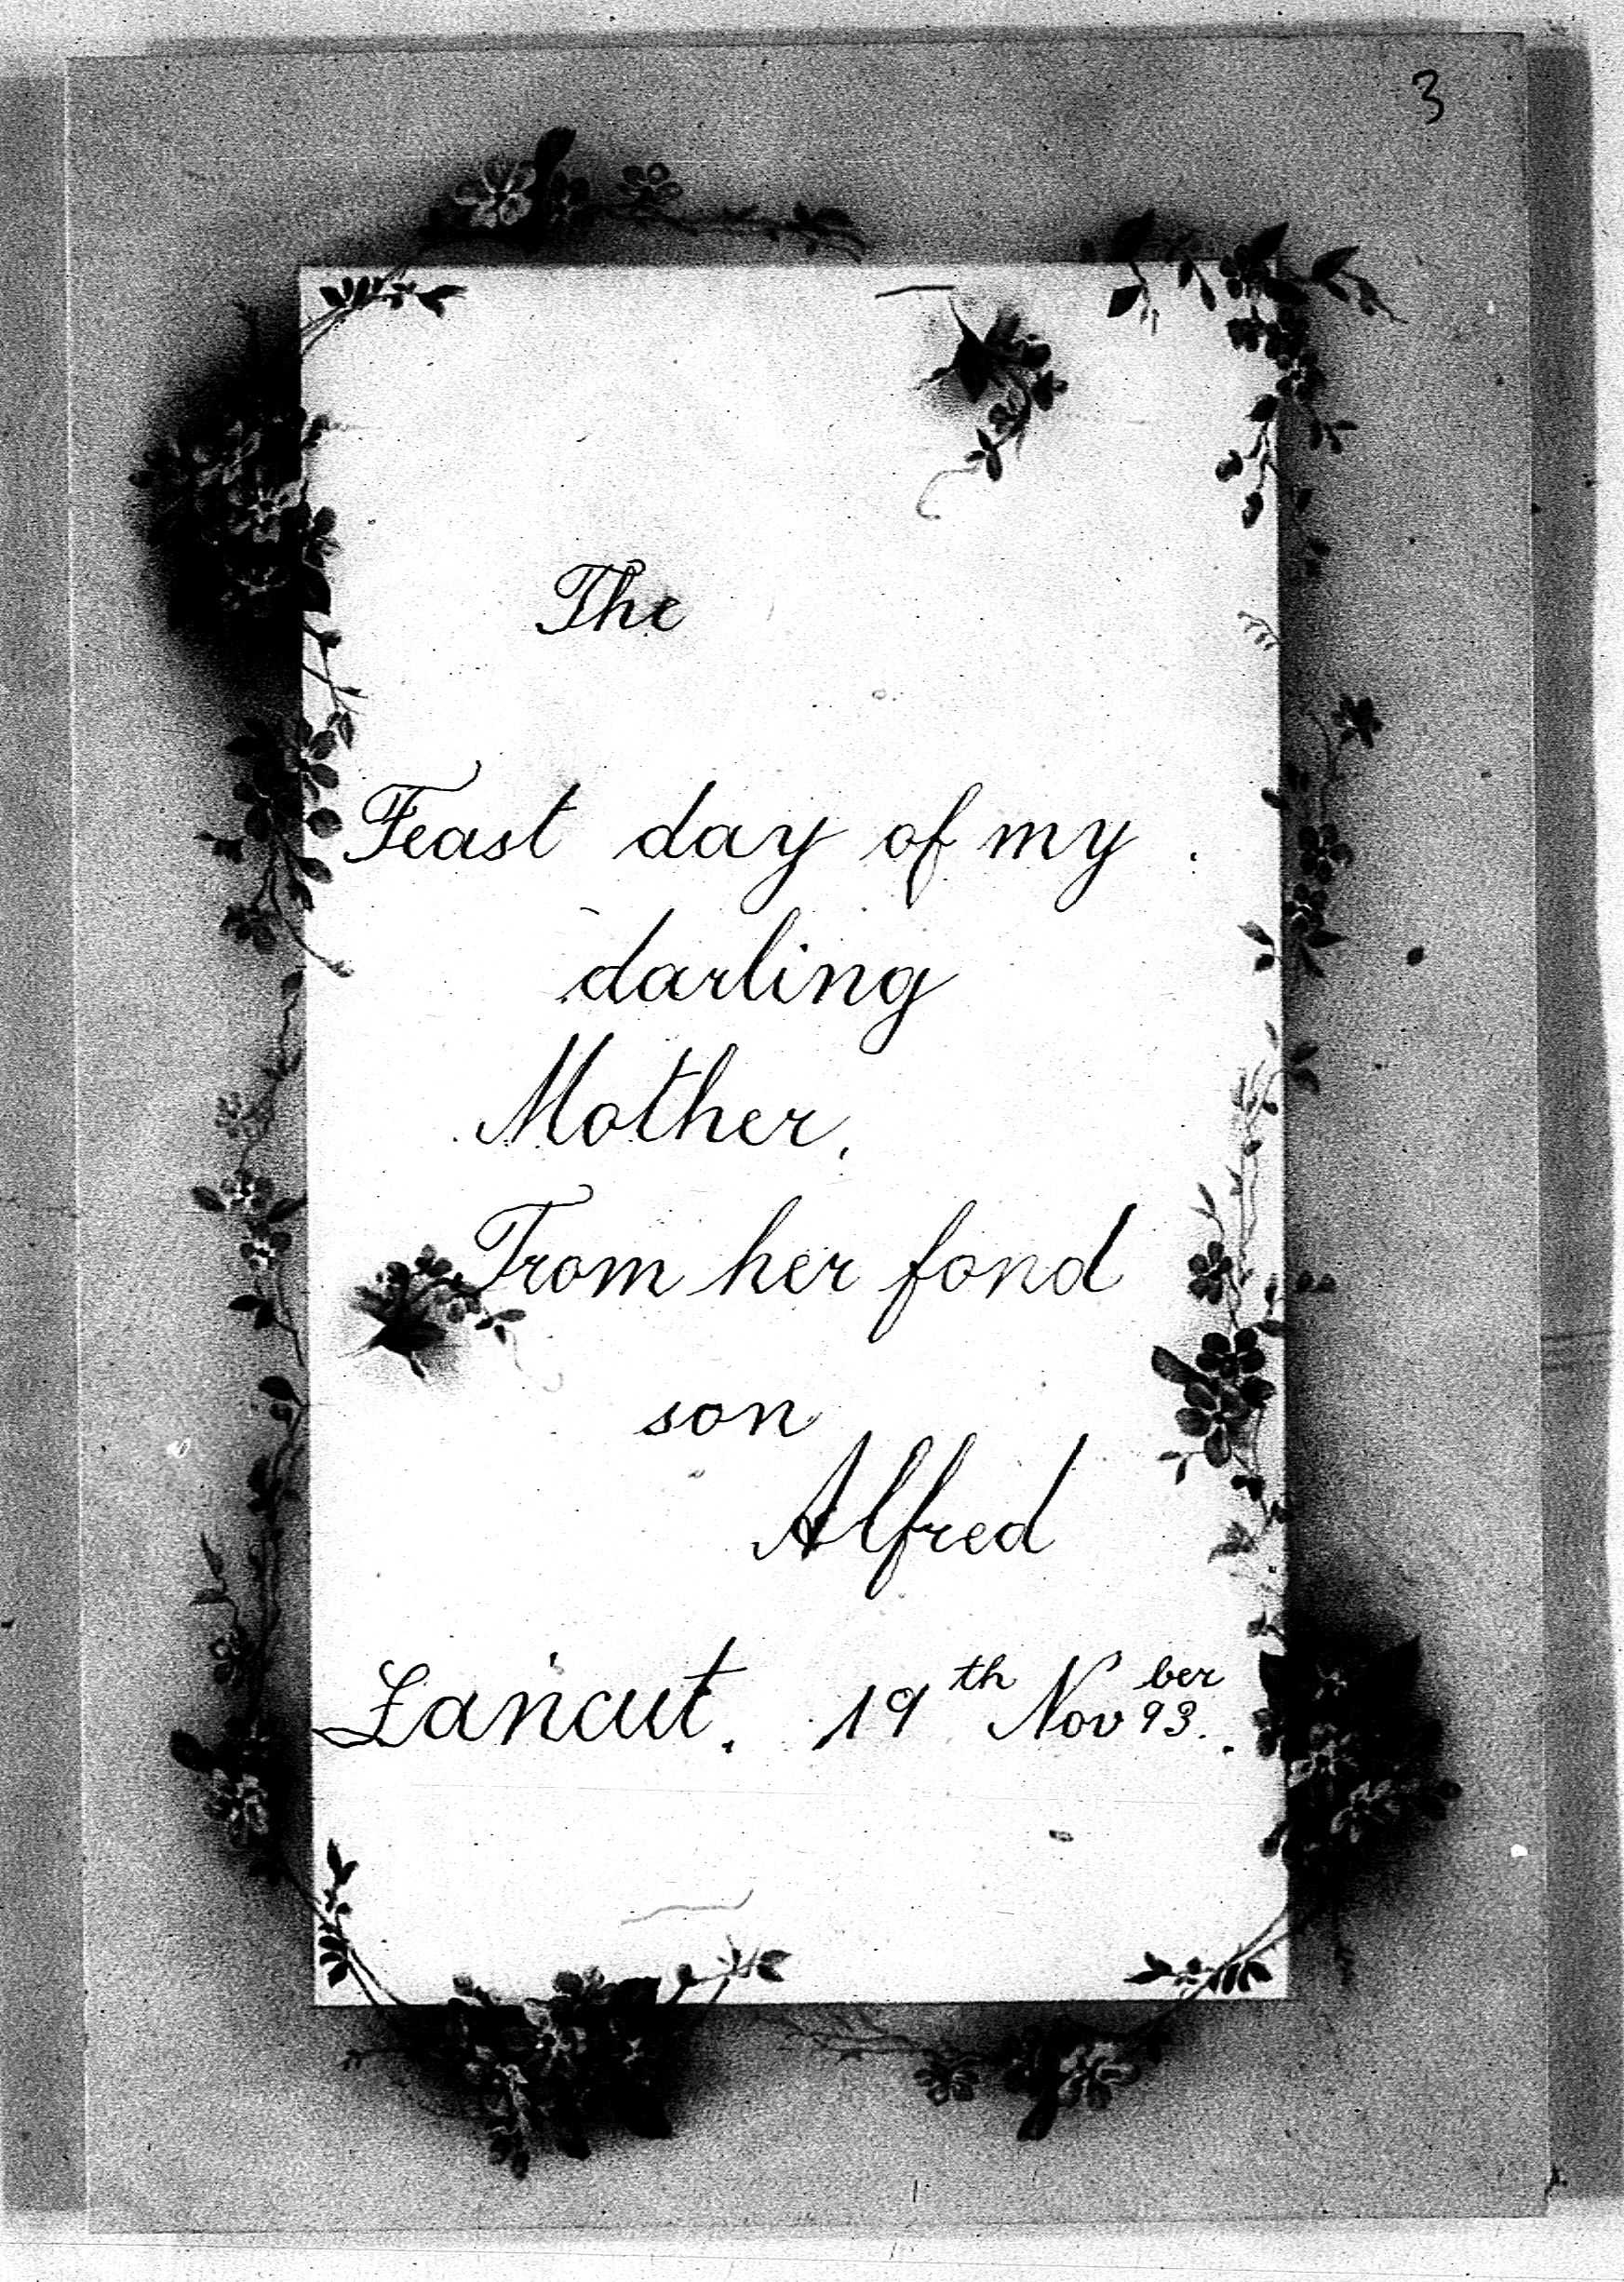 3
The
Feast day of my
darling
Mother.
From her fond
son
Alfred
Łańcut. 19th Novber 93.